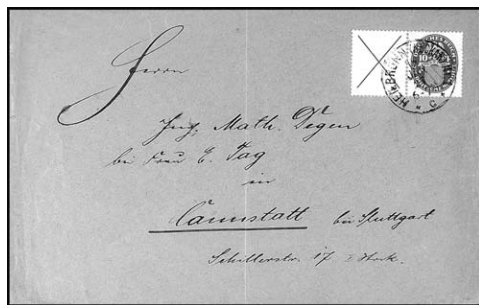 Herrn
Ing. Math. Degen
bei Frau E. Tag
in
Cannstatt bei Stuttgart
Schillerstr. 17 I Stock.
HEILBRONN
C
10